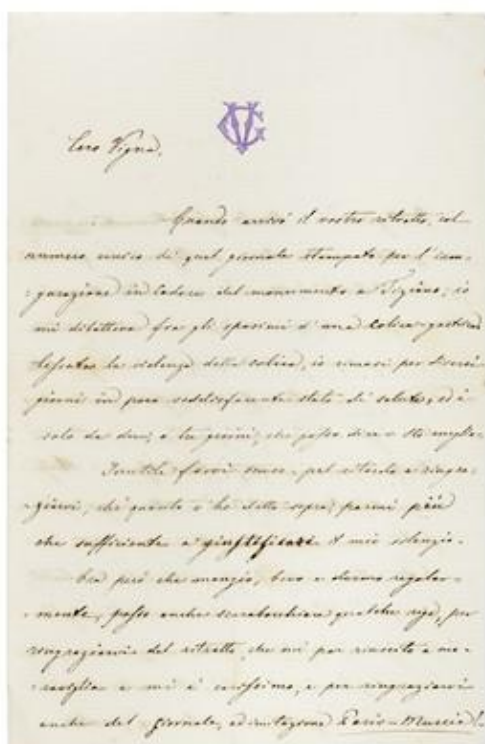 Caro Vigna,
Quando arrivò il vostro ritratto, col
numero unico di quel giornale stampato per l'inau-
-gurazione in Cadore del monumento a Tiziano, io
mi dilettava fra gli spasimi d'una colica-gastrica
la violenza della colica, io rimasi per diversi
giorni in poco soddisfacente stato di salute, ed è
solo da due, o tre giorni, che posso dire = sto meglio=
Inutile farvi scuse pel ritardo a ringra-
-ziarvi, chè quanto v'ho detto sopra, parmi più
che sufficiente a giustificare il mio silenzio.
Ora però che mangio, bevo e dormo regolar-
-mente, posso anche scarabocchiare qualche riga, per
ringraziarvi del ritratto, che mi par riuscito a me-
-raviglia e mi è carissimo, e per ringraziarvi
anche del giornale, ad imitazione Paris-Murcie!